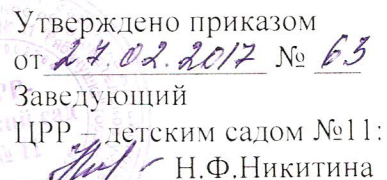 Утверждено приказом
от 27.02.2017 № 63
Заведующий
ЦРР – детским садом №11:
Н.Ф.Никитина